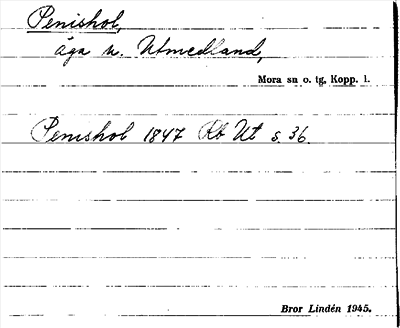 Penishol,
äga n. Utmedland,
Mora sn o. tg, Kopp. l.
Penishol 1847 Rb Ut s. 36.
Bror Lindén 1945.